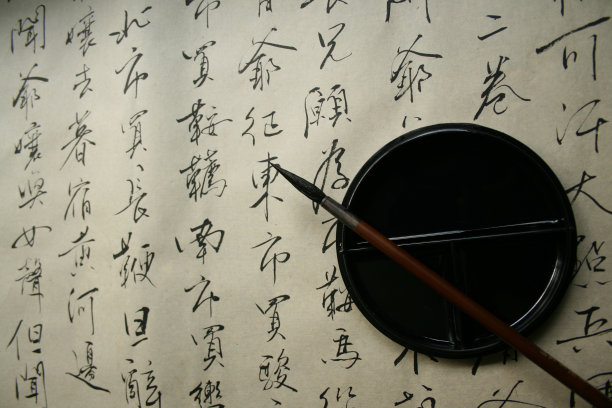 可汗大點兵
二卷
爺
兄願為市鞍馬從
爺征東市買駿
市買鞍韉南市買轡
北市買長鞭旦辭
孃去暮宿黃河邊
聞爺孃喚女聲但聞